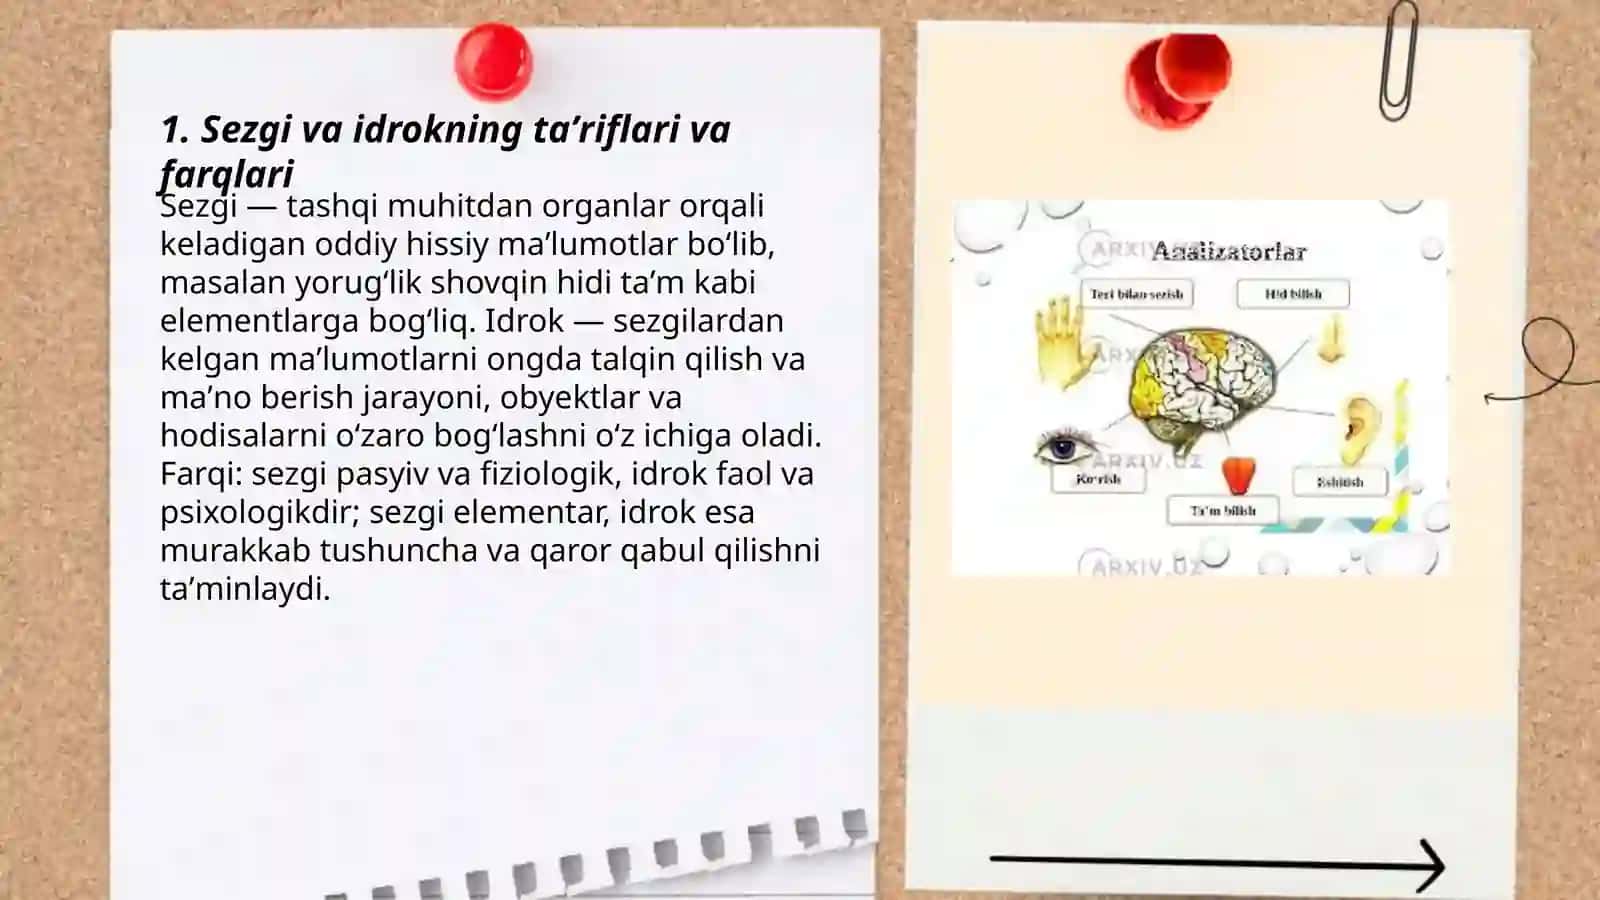 1. Sezgi va idrokning ta’riflari va
farqlari
Sezgi — tashqi muhitdan organlar orqali
keladigan oddiy hissiy ma’lumotlar bo‘lib,
masalan yorug‘lik shovqin hidi ta’m kabi
elementlarga bog‘liq. Idrok — sezgilardan
kelgan ma’lumotlarni ongda talqin qilish va
ma’no berish jarayoni, obyektlar va
hodisalarni o‘zaro bog‘lashni o‘z ichiga oladi.
Farqi: sezgi pasyiv va fiziologik, idrok faol va
psixologikdir; sezgi elementar, idrok esa
murakkab tushuncha va qaror qabul qilishni
ta’minlaydi.
Analizatorlar
Teri bilan sezish
Hid bilish
Ko‘rish
Eshitish
Ta’m bilish
ARXIV.UZ
ARXIV.UZ